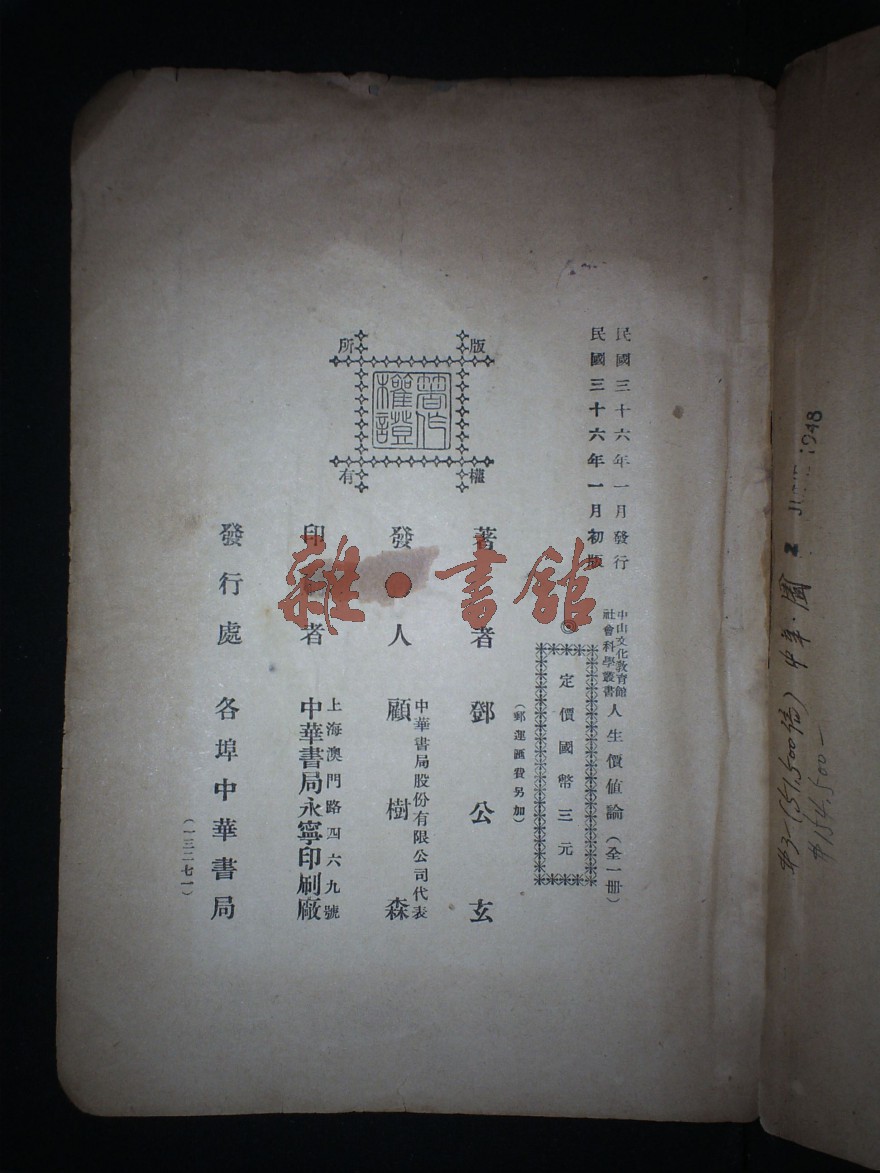 民國三十六年一月發行
民國三十六年一月初版
中山文化教育館
社會科學叢書
人生價值論（全一冊）
◎定價國幣三元
（郵運匯費另加）
版權所有
著作權證
著 者 鄧公玄
發 人 中華書局股份有限公司代表
顧樹森
印 者 上海澳門路四六九號
中華書局永寧印刷廠
發行處 各埠中華書局
（一三二七一）
雜·書館
1948
#154,500—